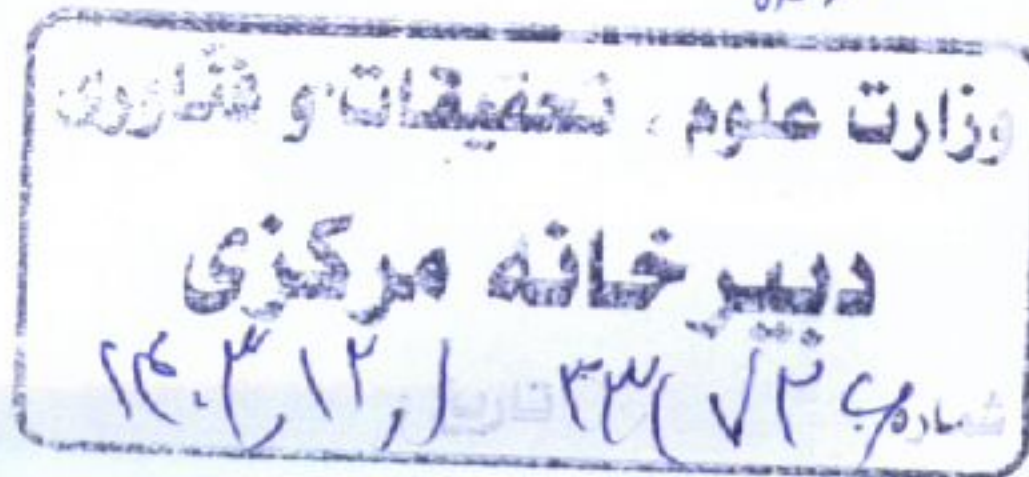 وزارت علوم، تحقیقات و فناوری
دبیرخانه مرکزی
شماره تاریخ ۱۴۰۳,۱۲,۱